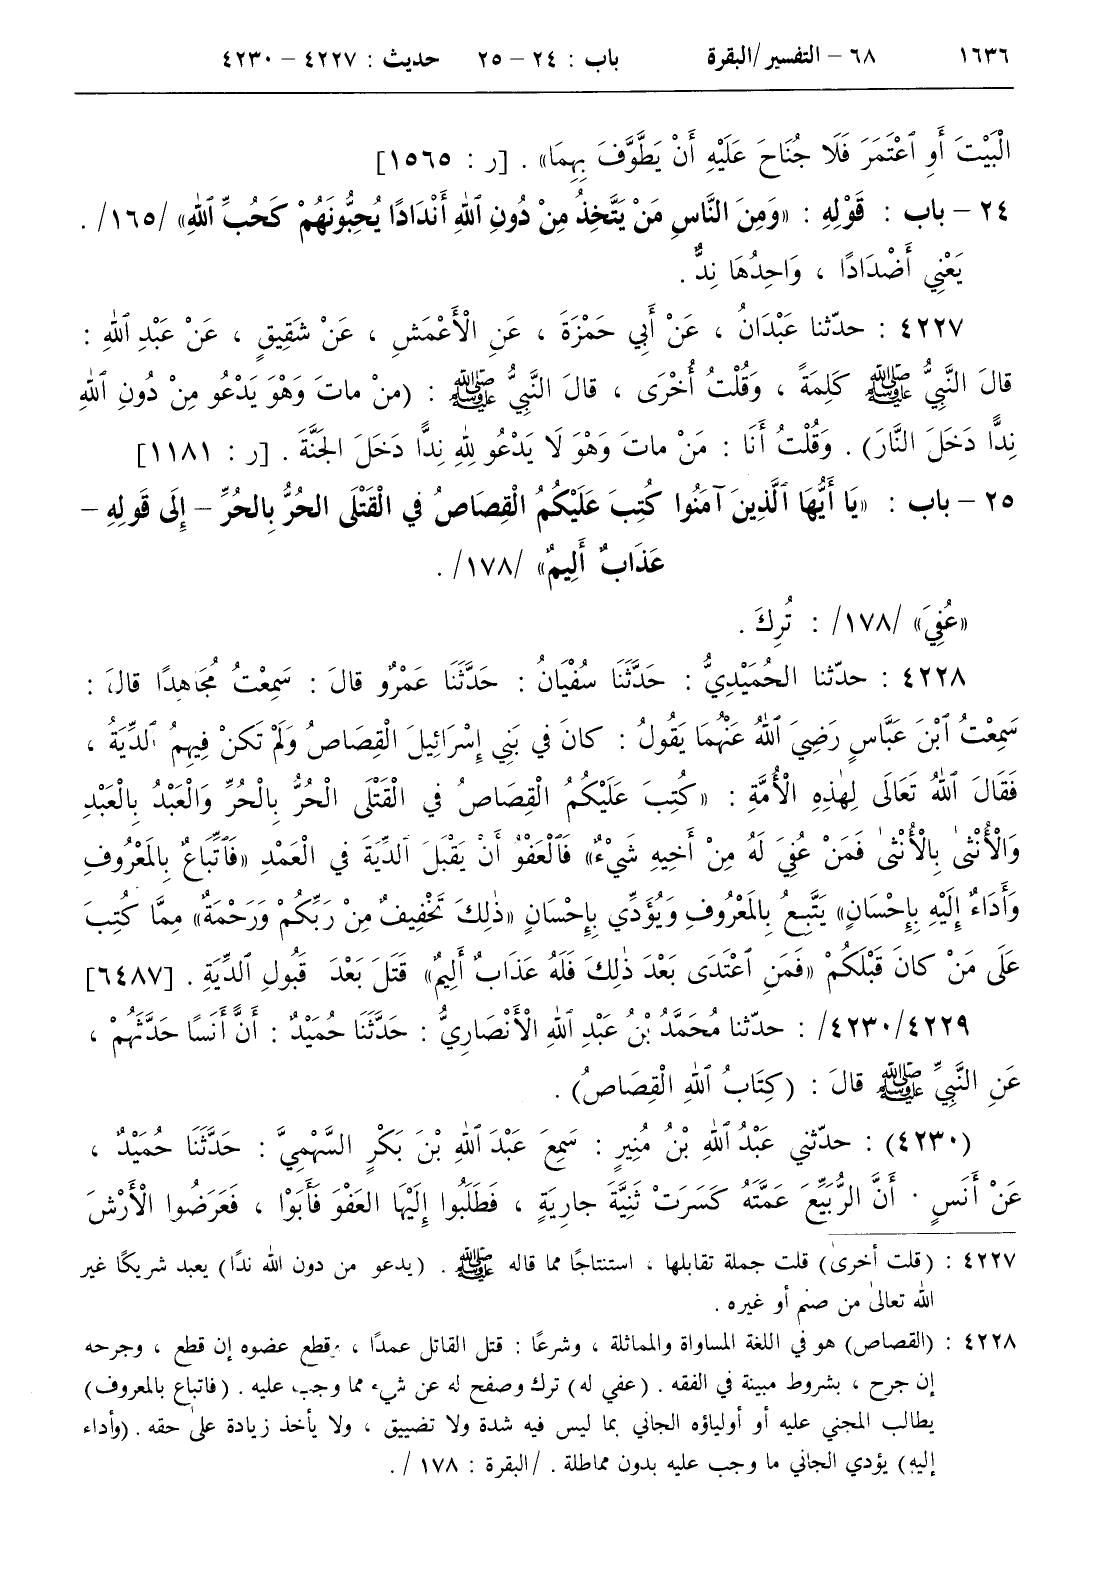 ١٦٣٦ ٦٨ – التفسير /البقرة باب : ٢٤ – ٢٥ حديث : ٤٢٢٧ – ٤٢٣٠
الْبَيْتَ أَوِ ٱعْتَمَرَ فَلَا جُنَاحَ عَلَيْهِ أَنْ يَطَّوَّفَ بِهِمَا» . [ر : ١٥٦٥]
٢٤ – باب : قَوْلِهِ : «وَمِنَ النَّاسِ مَنْ يَتَّخِذُ مِنْ دُونِ ٱللهِ أَنْدَادًا يُحِبُّونَهُمْ كَحُبِّ ٱللهِ» /١٦٥/ .
يَعْنِي أَضْدَادًا ، وَاحِدُهَا نِدٌّ .
٤٢٢٧ : حدّثنا عَبْدَانُ ، عَنْ أَبِي حَمْزَةَ ، عَنِ الْأَعْمَشِ ، عَنْ شَقِيقٍ ، عَنْ عَبْدِ ٱللهِ :
قالَ النَّبِيُّ ﷺ كَلِمَةً ، وَقُلْتُ أُخْرَى ، قالَ النَّبِيُّ ﷺ : (منْ ماتَ وَهْوَ يَدْعُو مِنْ دُونِ ٱللهِ
نِدًّا دَخَلَ النَّارَ) . وَقُلْتُ أَنَا : مَنْ ماتَ وَهْوَ لَا يَدْعُو لِلهِ نِدًّا دَخَلَ الجَنَّةَ . [ر : ١١٨١]
٢٥ – باب : «يَا أَيُّهَا ٱلَّذِينَ آمَنُوا كُتِبَ عَلَيْكُمُ الْقِصَاصُ في الْقَتْلَى الحُرُّ بِالحُرِّ – إِلَى قَوْلِهِ –
عَذَابٌ أَلِيمٌ» /١٧٨/ .
«عُفِيَ» /١٧٨/ : تُرِكَ .
٤٢٢٨ : حدّثنا الحُمَيْدِيُّ : حَدَّثَنَا سُفْيَانُ : حَدَّثَنَا عَمْرٌو قالَ : سَمِعْتُ مُجَاهِدًا قالَ :
سَمِعْتُ ٱبْنَ عَبَّاسٍ رَضِيَ ٱللهُ عَنْهُمَا يَقُولُ : كانَ في بَنِي إِسْرَائِيلَ الْقِصَاصُ وَلَمْ تَكنْ فِيهِمُ ٱلدِّيَةُ ،
فَقَالَ ٱللهُ تَعَالَى لِهٰذِهِ الْأُمَّةِ : «كُتِبَ عَلَيْكُمُ الْقِصَاصُ في الْقَتْلَى الْحُرُّ بِالْحُرِّ وَالْعَبْدُ بِالْعَبْدِ
وَالْأُنْثىٰ بِالْأُنْثىٰ فَمَنْ عُفِيَ لَهُ مِنْ أَخِيهِ شَيْءٌ» فَٱلْعَفْوُ أَنْ يَقْبَلَ ٱلدِّيَةَ في الْعَمْدِ «فَٱتِّبَاعٌ بِالمَعْرُوفِ
وَأَدَاءٌ إِلَيْهِ بِإِحْسَانٍ» يَتَّبِعُ بِالمَعْرُوفِ وَيُؤَدِّي بِإِحْسَانٍ «ذٰلِكَ تَخْفِيفٌ مِنْ رَبِّكُمْ وَرَحْمَةٌ» مِمَّا كُتِبَ
عَلَى مَنْ كانَ قَبْلَكُمْ «فَمَنِ ٱعْتَدَى بَعْدَ ذٰلِكَ فَلَهُ عَذَابٌ أَلِيمٌ» قَتَلَ بَعْدَ قَبُولِ ٱلدِّيَةِ . [٦٤٨٧]
٤٢٣٠/٤٢٢٩/ : حدّثنا مُحَمَّدُ بْنُ عَبْدِ ٱللهِ الْأَنْصَارِيُّ : حَدَّثَنَا حُمَيْدٌ : أَنَّ أَنَسًا حَدَّثَهُمْ ،
عَنِ النَّبِيِّ ﷺ قالَ : (كِتَابُ ٱللهِ الْقِصَاصُ) .
(٤٢٣٠) : حدّثني عَبْدُ ٱللهِ بْنُ مُنِيرٍ : سَمِعَ عَبْدَ ٱللهِ بْنَ بَكْرٍ السَّهْمِيَّ : حَدَّثَنَا حُمَيْدٌ ،
عَنْ أَنَسٍ : أَنَّ الرُّبَيِّعَ عَمَّتَهُ كَسَرَتْ ثَنِيَّةَ جارِيَةٍ ، فَطَلَبُوا إِلَيْهَا العَفْوَ فَأَبَوْا ، فَعَرَضُوا الْأَرْشَ
٤٢٢٧ : (قلت أخرىٰ) قلت جملة تقابلها ، استنتاجًا مما قاله ﷺ . (يدعو من دون الله ندًا) يعبد شريكًا غير
الله تعالىٰ من صنم أو غيره .
٤٢٢٨ : (القصاص) هو في اللغة المساواة والمماثلة ، وشرعًا : قتل القاتل عمدًا ، وقطع عضوه إن قطع ، وجرحه
إن جرح ، بشروط مبينة في الفقه . (عفي له) ترك وصفح له عن شيء مما وجب عليه . (فاتباع بالمعروف)
يطالب المجني عليه أو أولياؤه الجاني بما ليس فيه شدة ولا تضييق ، ولا يأخذ زيادة علىٰ حقه . (وأداء
إليه) يؤدي الجاني ما وجب عليه بدون مماطلة . /البقرة : ١٧٨ / .